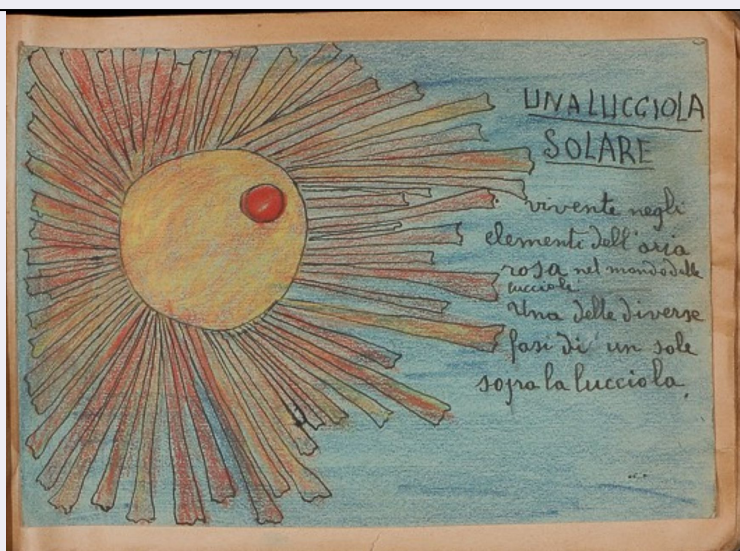 UNA LUCCIOLA
SOLARE
vivente negli
elementi dell'aria
rosa nel mondo delle
lucciole.
Una delle diverse
fasi di un sole
sopra la lucciola.